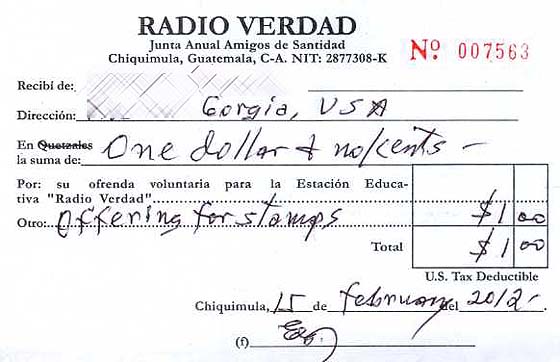 RADIO VERDAD
Junta Anual Amigos de Santidad
Chiquimula, Guatemala, C-A. NIT: 2877308-K
Nº 007563
Recibí de:
Dirección: Gorgia, USA
En Quetzales One dollar & no/cents –
la suma de:
Por: su ofrenda voluntaria para la Estación Educa-
tiva "Radio Verdad"
Otro: Offering for stamps $1 00
Total $1 00
U.S. Tax Deductible
Chiquimula, 15 de february del 2012-
(f)